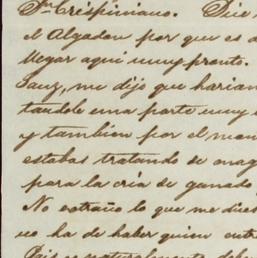 Dn. Crispiniano. Dice
el Algodon por que es a
llegar aqui muy pronto.
Sauz, me dijo que harian
tandole una parte muy
y tambien por el man
estabas tratando de
para la cria de ganado
No extraño lo que me dices
no ha de haber quien entr
Pais es naturalmente